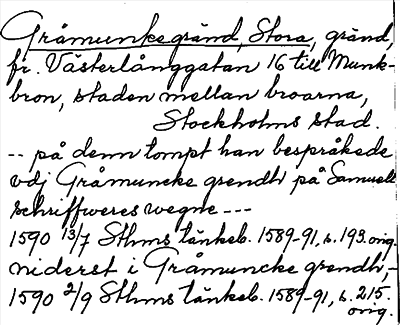 Gråmunkegränd, Stora, gränd,
fr. Västerlånggatan 16 till Munk-
bron, staden mellan broarna,
Stockholms stad.
-- på denn tompt han bespråkede
vdj Gråmuncke grendh på Samuell
schriffweres wegne ---
1590 13/7 Sthms tänkeb. 1589-91, s. 193. orig.
niderst i Gråmuncke grendh,-
1590 2/9 Sthms tänkeb. 1589-91, s. 215.
orig.